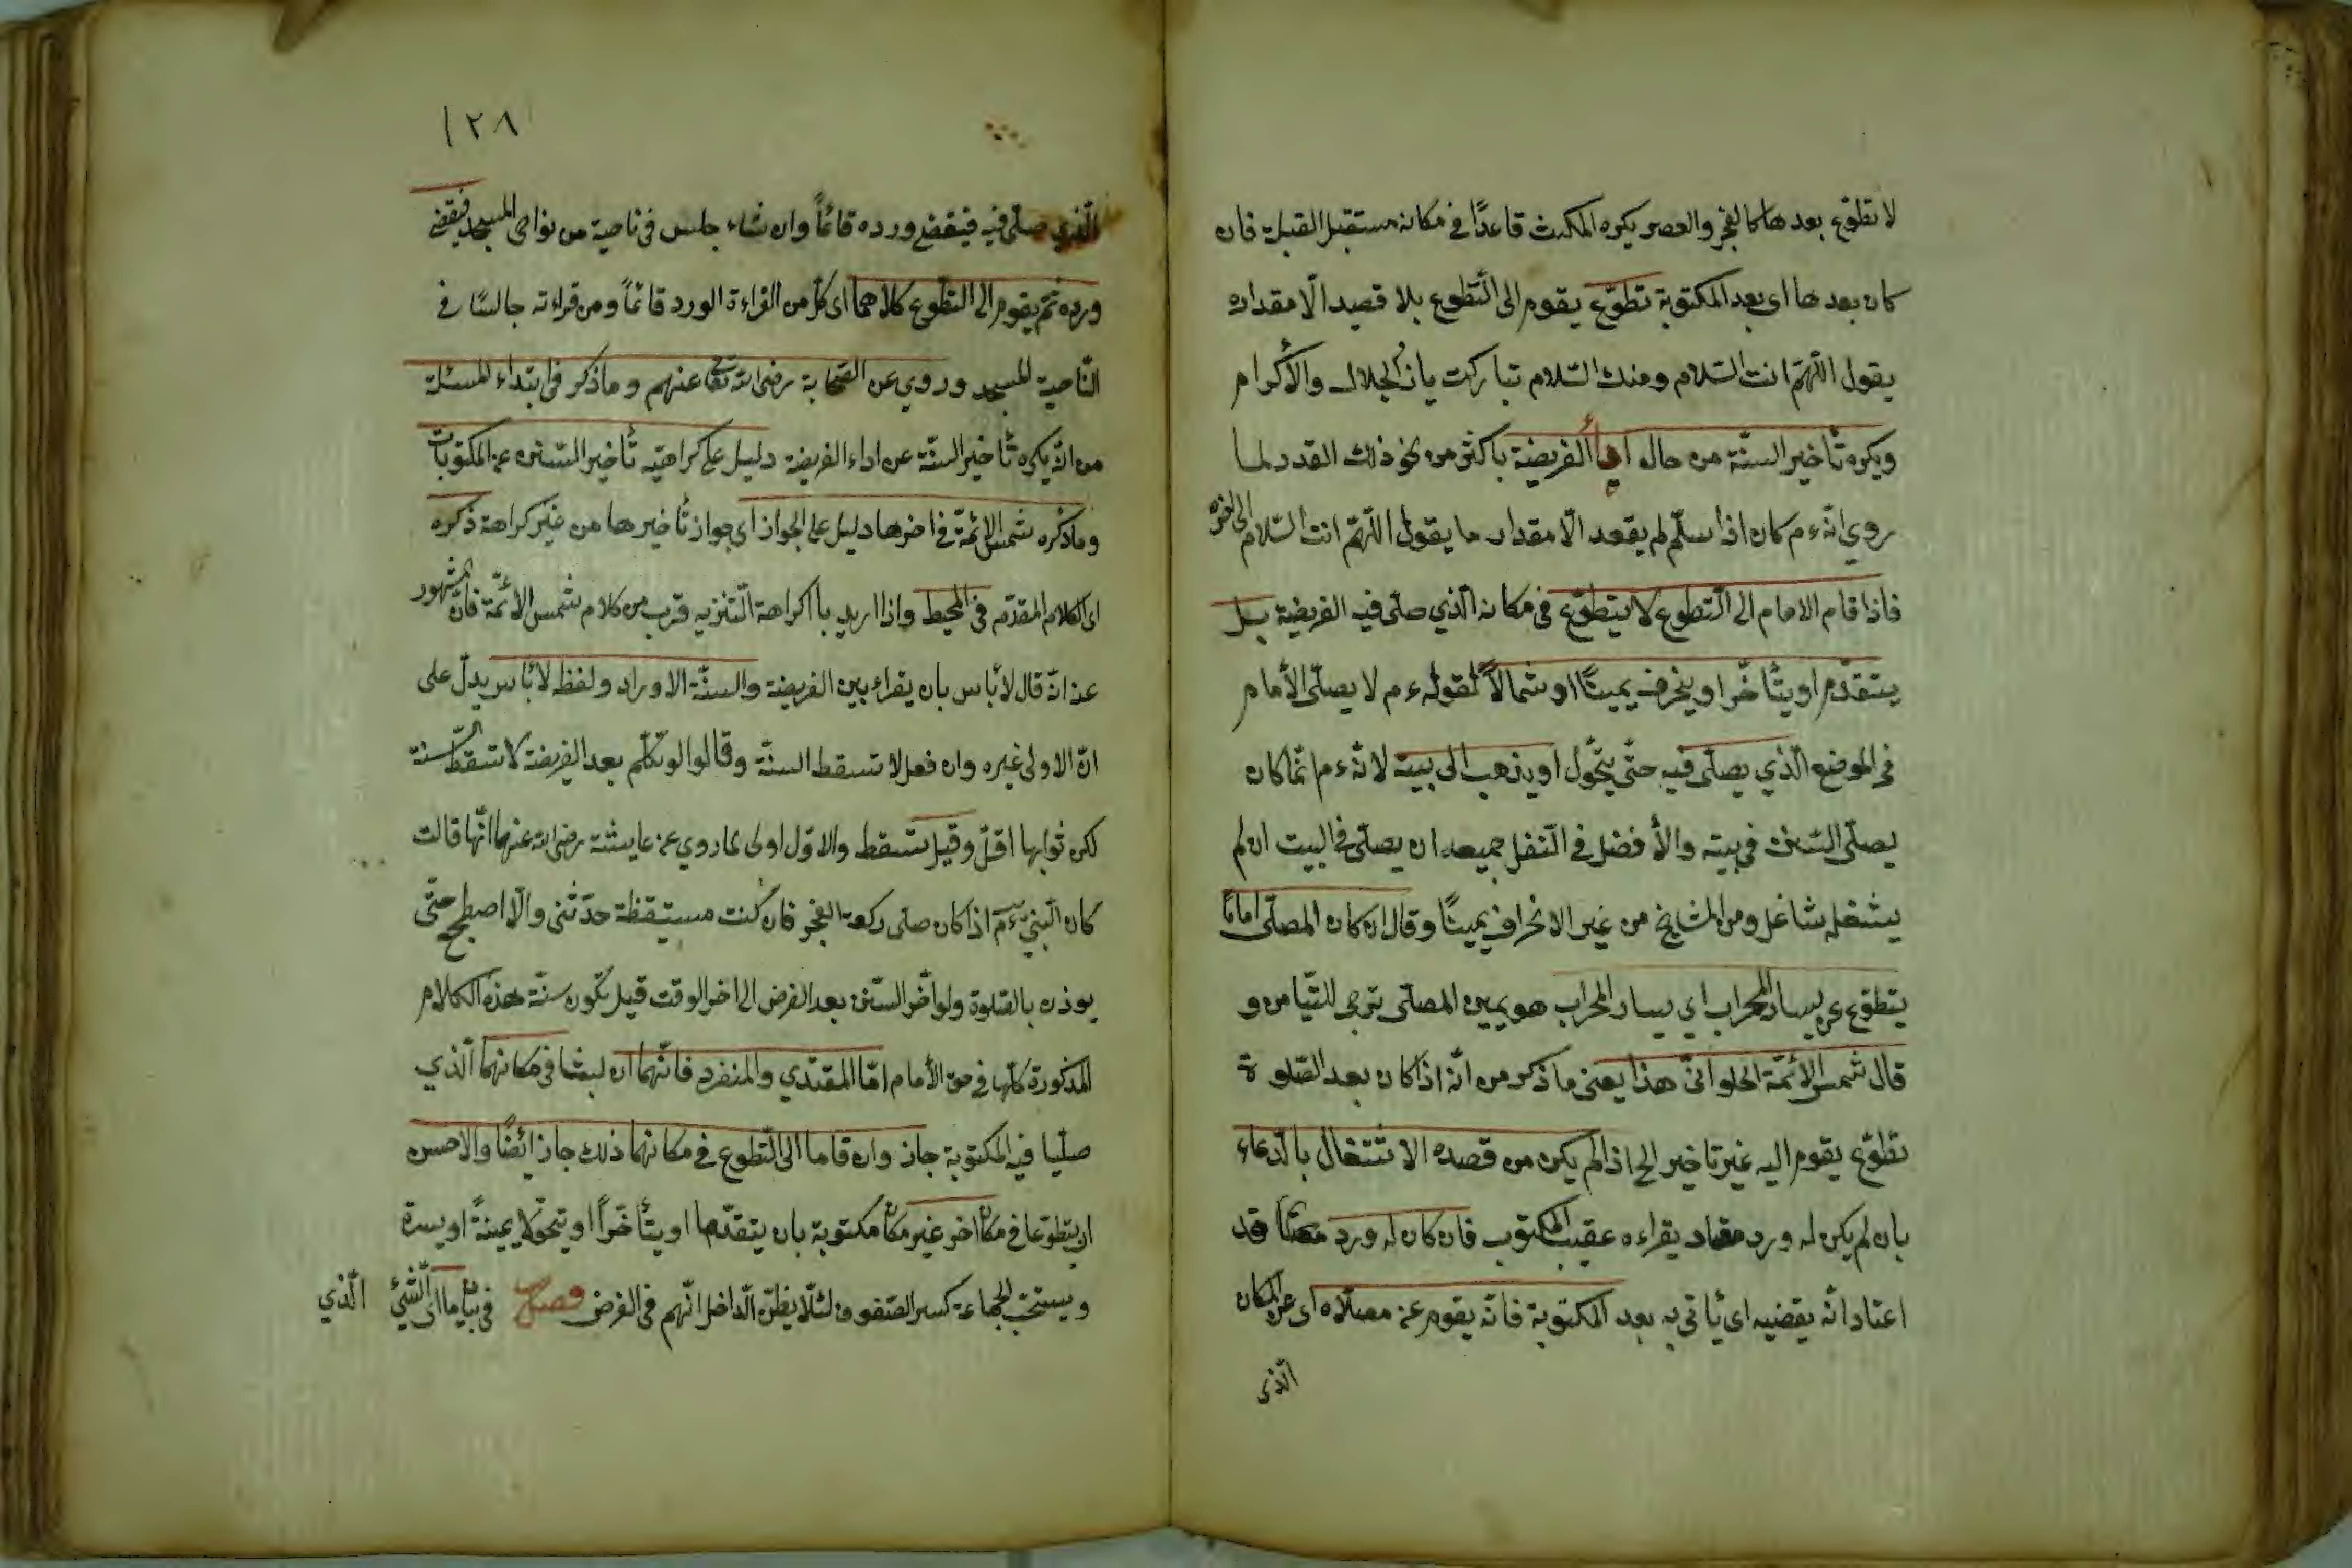 لا تطوّع بعدها كالفجر والعصر يكره المكث قاعدًا في مكانه مستقبل القبلة فان
كان بعدها اى بعد المكتوبة تطوّع يقوم الى التّطوع بلا قصيد الّا مقداره
يقول اللّهمّ انت السّلام ومنك السّلام تباركت ياذالجلال والأكرام
ويكره تأخير السنّة من حال الفريضة باكثر من نحو ذلك القدر لما
روي انّه ءم كان اذا سلّم لم يقعد الّا مقدار ما يقول اللّهمّ انت السّلام الى اخره
فاذا قام الامام الى التّطوع لا يتطوّع في مكانه الّذي صلّى فيه الفريضة بل
يتقدّم او يتأخّر او ينحرف يمينًا او شمالاً لقوله ءم لا يصلّى الأمام
في الموضع الّذي يصلّى فيه حتّى يتحّول او يذهب الى بيته لانّه ءم انّما كان
يصلّى السّنن في بيته والأفضل في النّفل جميعه ان يصلّى في البيت ان لم
يشغله شاغل ومن المشايخ من غير الانحراف يمينًا وقال ان كان المصلّى امامًا
يتطوّع عن يسار المحراب اي يسار المحراب هو يمين المصلّى ترجى للتّيامن و
قال شمس الأئمّة الحلوانىّ هذا يعنى ما ذكر من انّه اذا كان بعد الصّلوة
تطوّع يقوم اليه غير تاخير الخ اذا لم يكن من قصده الاشتغال بالدّعاء
بان لم يكن له ورد معتاد يقراءه عقيب المكتوب فان كان له ورد قد
اعتاد انّه يقضيه اى يأتي به بعد المكتوبة فانّه يقوم عن مصلّاه اى عن المكان
الّذى
١٢٨
الّذي صلّى فيه فيقضع ورده قائماً وان شاء جلس في ناحية من نواحى المسجد فيقضى
ورده ثمّ يقوم الى التطّوع كلاهما اى كلّ من القراءة الورد قائماً ومن قراءته جالسًا في
النّاحية المسجد وروي عن الصّحابة رضى الله تعالى عنهم وما ذكر في ابتداء المسئلة
من انّه يكره تأخير السنّة عن اداء الفريضة دليل على كراهيّة تأخير السّنن عن المكتوبات
وما ذكره شمس الائمّة في اخرها دليل على الجواز اى جواز تأخيرها من غير كراهة ذكره
اى الكلام المقدّم في المحيط واذا اريد باا كراهة التّنزيه قرب من كلام شمس الائمّة فانّ المشهور
عنه انّه قال لأباس بان يقراء بين الفريضة والسنّة الاوراد ولفظ لأباس يدلّ على
انّ الاولى غيره وان فعل لا تسقط السنّة وقالوا لو تكلّم بعد الفريضة لا تسقط السّنة
لكن ثوابها اقلّ وقيل تسقط والاوّل اولى لما روي عن عايشة رضى الله عنها انّها قالت
كان النّبيّ ءم اذا كان صلى ركعة الفجر فان كنت مستيقظة حدّثنى والّا اضطجع حتّى
يوذن بالصّلوة ولو أخّر السّنن بعد الفرض الى اخر الوقت قيل تكون سنّة هذه الكلام
المذكورة كلّها في حق الأمام امّا المقتدي والمنفرد فانّهما ان لبثا في مكانهما الّذي
صلّيا فيه المكتوبة جاز وان قاما الى التّطوع في مكانهما ذلك جاز ائضًا والاحسن
ان يتطوّعا في مكان اخر غير مكان مكتوبة بان يتقدّما او يتأخّراً او يتحوّلا يمينةً او يسرة
ويستحّب لجماعة كسر الصّفوف لئلّا يظنّ الّداخل انّهم في الفرض فصل في بيان ما اى الشّئ الّذي